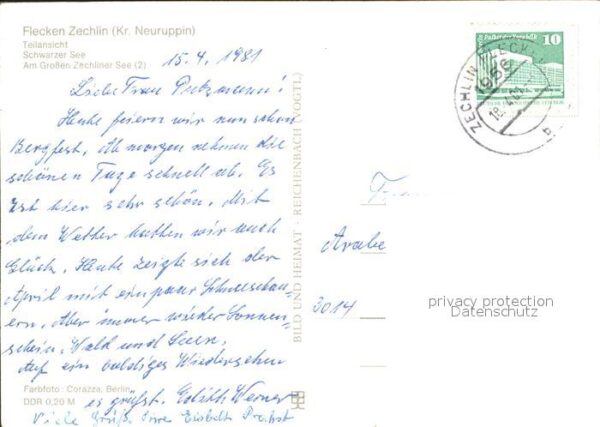 Flecken Zechlin (Kr. Neuruppin)
Teilansicht
Schwarzer See
Am Großen Zechliner See (2)
15.4.1981
Liebe Frau
Heute feiern wir nun schon
Bergfest. Ab morgen nehmen die
schönen Tage schnell ab. Es
ist hier sehr schön. Mit
dem Wetter hatten wir auch
Glück. Heute zeigte sich der
April mit ein paar Schneeschau-
ern. Aber immer wieder Sonnen-
schein, Wald und Seen.
Auf ein baldiges Wiedersehen
es grüßt. Edith Werner
Viele Grüße Ihre Elsbeth Probst
Farbfoto: Corazza, Berlin
DDR 0,20 M
BILD UND HEIMAT · REICHENBACH (VOGTL)
10
ZECHLIN FLECKEN
1955
3014
privacy protection
Datenschutz